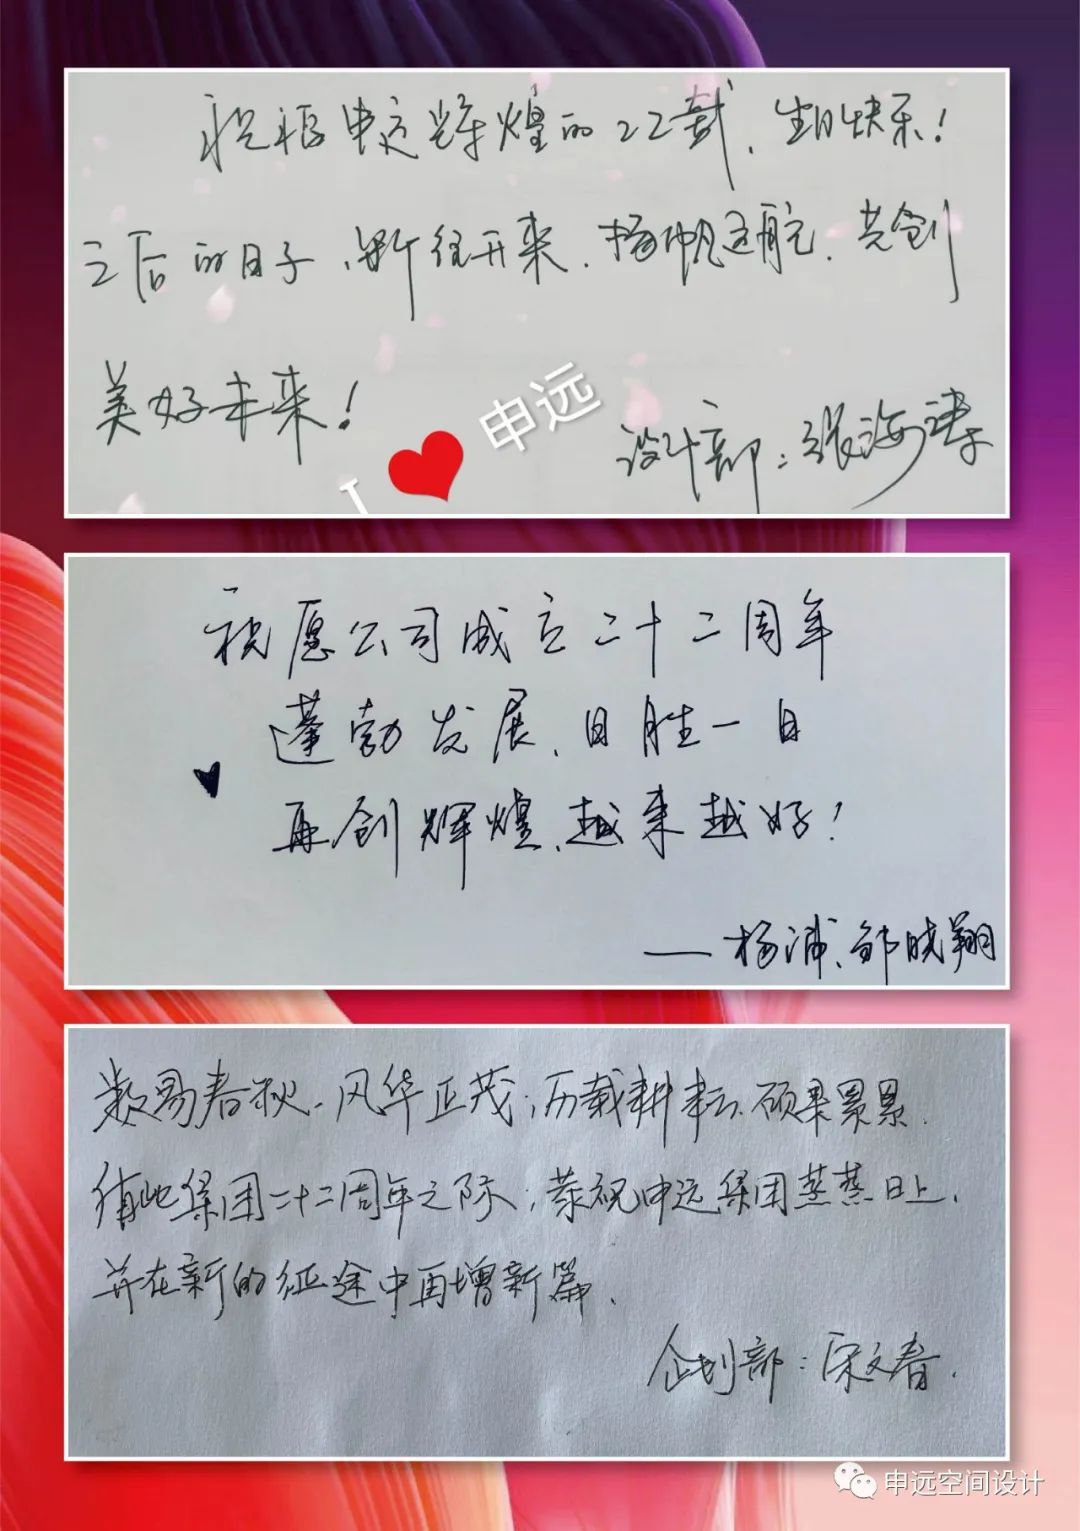 祝福申远辉煌的22载、生日快乐!
之后的日子、继往开来、扬帆远航、共创
美好未来!
I ❤ 申远
设计部:张海
祝愿公司成立二十二周年
蓬勃发展、日胜一日
再创辉煌、越来越好!
——杨浦、邹晓翔
数易春秋、风华正茂;历载耕耘、硕果累累、
值此集团二十二周年之际;恭祝申远集团蒸蒸日上、
并在新的征途中再增新篇、
企划部:宋文春.
申远空间设计